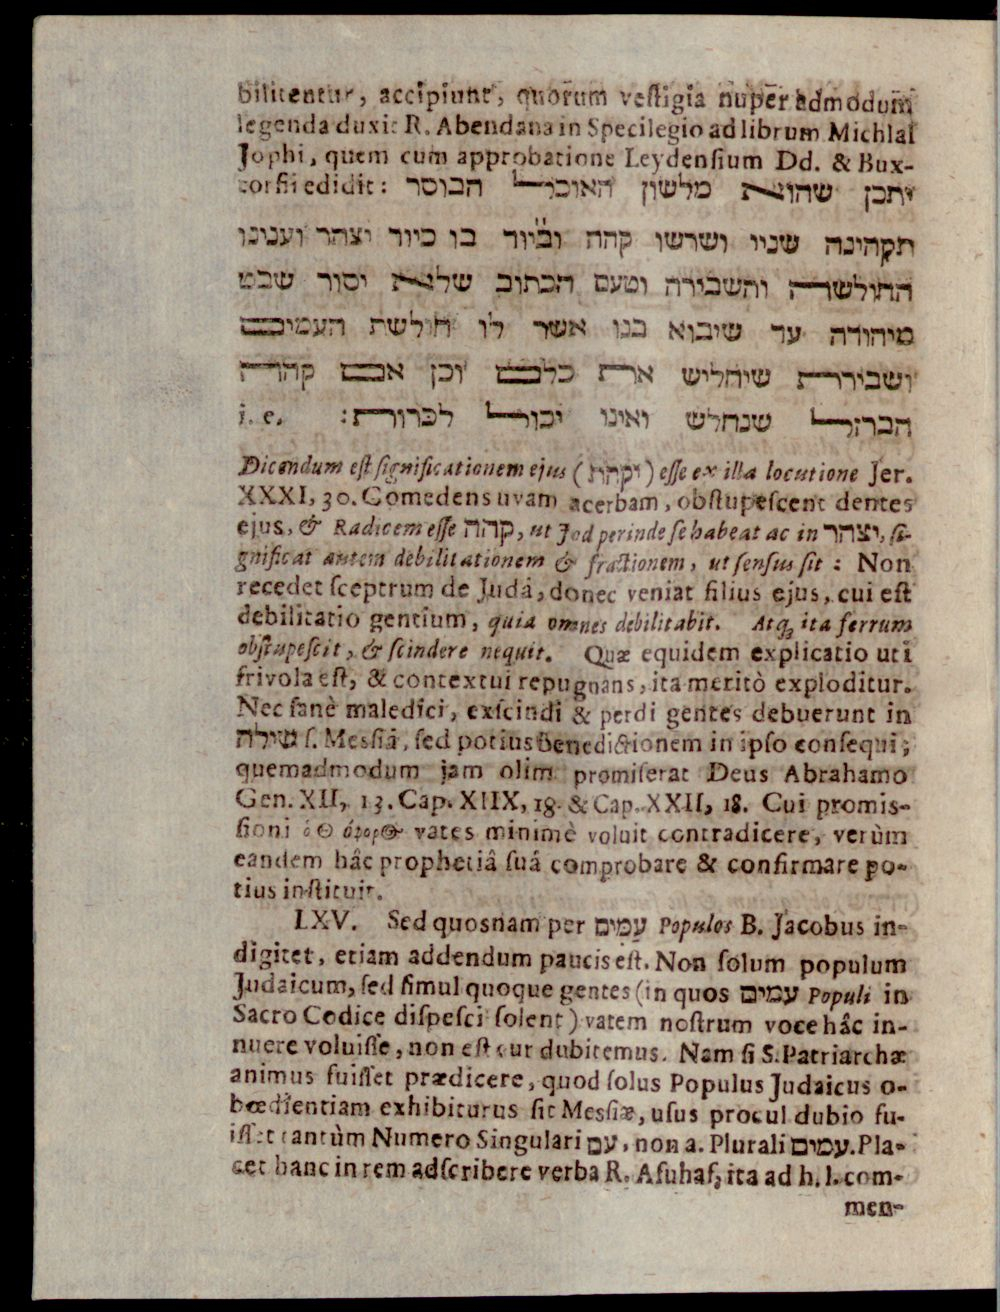 bilitentur, accipiunt, quorum veſtigia nuper admodum
legenda duxit R. Abendana in Specilegio ad librum Michlal
Jophi, quem cum approbatione Leydenſium Dd. & Bux-
torfii edidit: יתכן שהוא מלשון האוכל הבוסר
תקהינה שניו ושרשו קהה והיוד בו כיוד יצהר וענינו
החולשה והשבירה וטעם הכתוב שלא יסור שבט
מיהודה עד שיבוא בנו אשר לו חולשת העמים
ושבירת שיחליש את כלם וכן אם קהה
הברזל שנחלש ואינו יכול לכרות: i. e.
Dicendum eſt ſignificationem ejus (יקהת) eſſe ex illa locutione Jer.
XXXI, 30. Comedens uvam acerbam, obſtupeſcent dentes
ejus, & Radicem eſſe קהה, ut Jod perinde ſe habeat ac in יצהר, ſi-
gnificat autem debilitationem & fractionem, ut ſenſus ſit: Non
recedet ſceptrum de Judâ, donec veniat filius ejus, cui eſt
debilitatio gentium, quia omnes debilitabit. Atq; ita ferrum
obſtupeſcit, & ſcindere nequit. Quæ equidem explicatio uti
frivola eſt, & contextui repugnans, ita meritò exploditur.
Nec ſanè maledici, exſcindi & perdi gentes debuerunt in
שילה ſ. Meſſiâ, ſed potius benedictionem in ipſo conſequi;
quemadmodum jam olim promiſerat Deus Abrahamo
Gen. XII, 13. Cap. XIIX, 18. & Cap. XXII, 18. Cui promis-
ſioni vates minimè voluit contradicere, verùm
eandem hâc prophetiâ ſuâ comprobare & confirmare po-
tius inſtituit.
LXV. Sed quosnam per עמים Populos B. Jacobus in-
digitet, etiam addendum paucis eſt. Non ſolum populum
Judaicum, ſed ſimul quoque gentes (in quos עמים Populi in
Sacro Codice diſpeſci ſolent) vatem noſtrum voce hâc in-
nuere voluiſſe, non eſt cur dubitemus. Nam ſi S. Patriarchæ
animus fuiſſet prædicere, quod ſolus Populus Judaicus o-
bœdientiam exhibiturus ſit Meſſiæ, uſus procul dubio fu-
iſſet tantùm Numero Singulari עם, non a. Plurali עמים. Pla-
cet hanc in rem adſcribere verba R. Aſuhaf, ita ad h. l. com-
men-